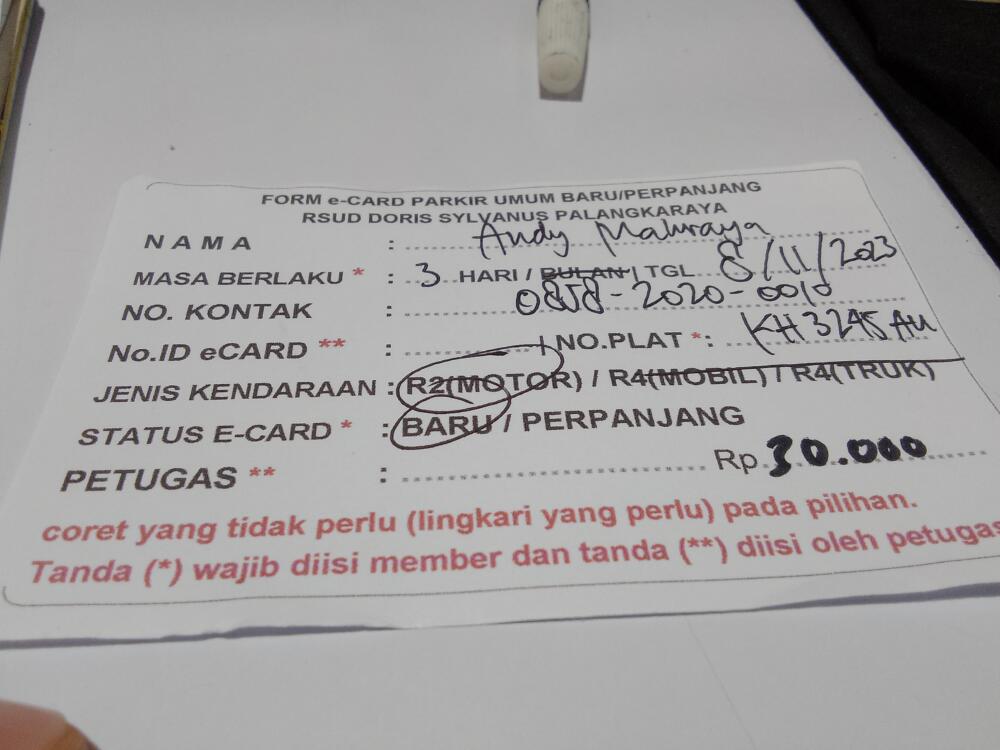 FORM e-CARD PARKIR UMUM BARU/PERPANJANG
RSUD DORIS SYLVANUS PALANGKARAYA
NAMA : Andy Mahraya
MASA BERLAKU * : 3 HARI / BULAN / TGL 8/11/2023
NO. KONTAK : 0858-2020-0010
No.ID eCARD ** : / NO.PLAT *: KH 3245 AU
JENIS KENDARAAN : R2(MOTOR) / R4(MOBIL) / R4(TRUK)
STATUS E-CARD * : BARU / PERPANJANG
PETUGAS ** : Rp 30.000
coret yang tidak perlu (lingkari yang perlu) pada pilihan.
Tanda (*) wajib diisi member dan tanda (**) diisi oleh petugas